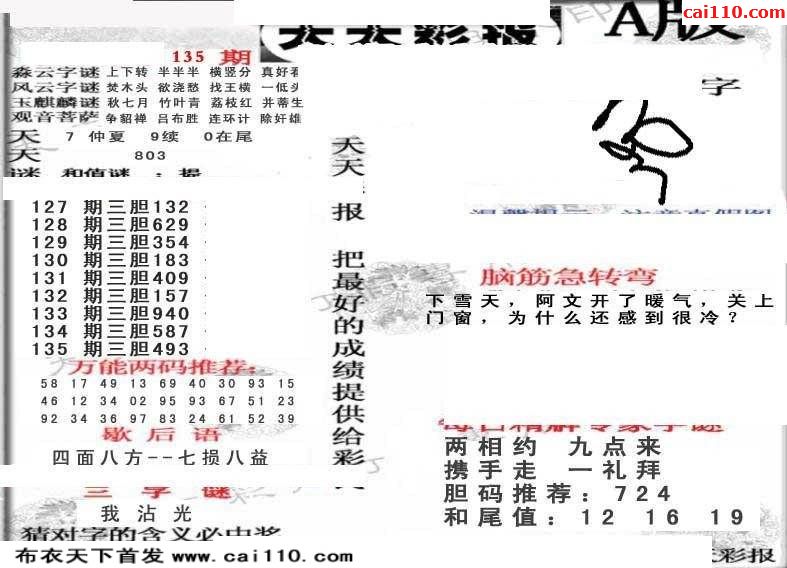 cai110.com
天天彩报
A版
135 期
淼云字谜 上下转 半半半 横竖分 真好看
风云字谜 焚木头 欲浇愁 找王横 一低头
玉麒麟谜 秋七月 竹叶青 荔枝红 并蒂生
观音菩萨 争貂禅 吕布胜 连环计 除奸雄
天 7 仲夏 9续 0在尾
天 803
谜 和值谜 :
字
127 期三胆132
128 期三胆629
129 期三胆354
130 期三胆183
131 期三胆409
132 期三胆157
133 期三胆940
134 期三胆587
135 期三胆493
万能两码推荐:
58 17 49 13 69 40 30 93 15
46 12 34 02 95 93 67 51 23
92 34 36 97 83 24 61 52 39
歇后语
四面八方--七损八益
三字谜
我沾光
猜对字的含义必中奖
布衣天下首发 www.cai110.com
天天报 把最好的成绩提供给彩
脑筋急转弯
下雪天，阿文开了暖气，关上
门窗，为什么还感到很冷？
每日精解专家字谜
两相约 九点来
携手走 一礼拜
胆码推荐：724
和尾值：12 16 19
彩报